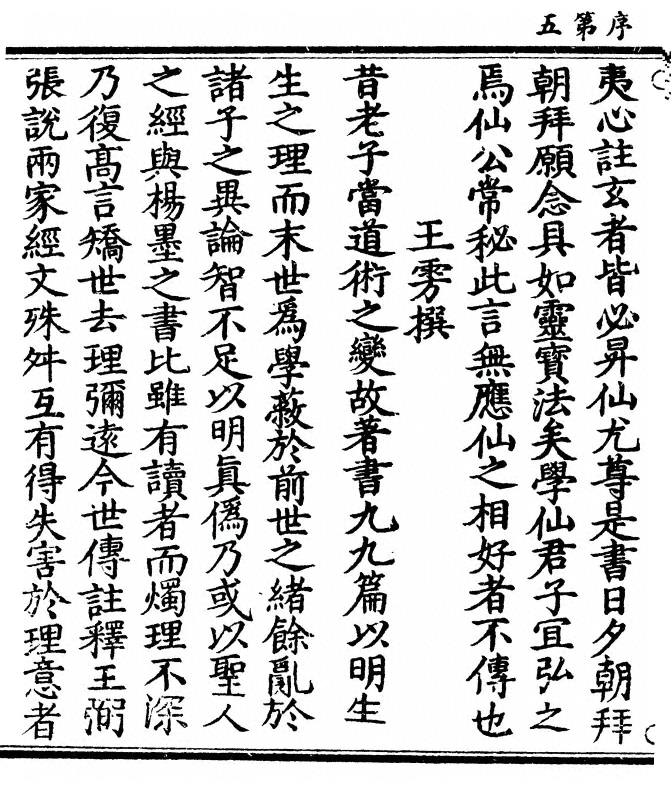 序第五
夷心註玄者皆必昇仙尤尊是書日夕朝拜
朝拜願念具如靈寶法矣學仙君子宜弘之
焉仙公常秘此言無應仙之相好者不傳也
王雱撰
昔老子當道術之變故著書九九篇以明生
生之理而末世為學蔽於前世之緒餘亂於
諸子之異論智不足以明真偽乃或以聖人
之經與楊墨之書比雖有讀者而燭理不深
乃復高言矯世去理彌遠今世傳註釋王弼
張說兩家經文殊舛互有得失害於理意者